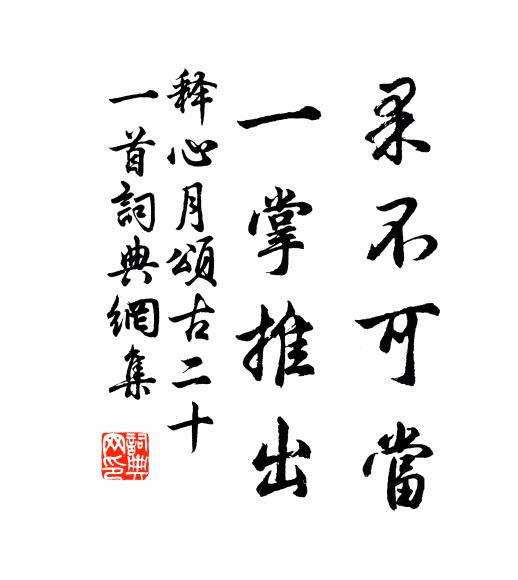 果不可當
一掌推出
释心月頌古二十
一首詞典網集
詞典
网印